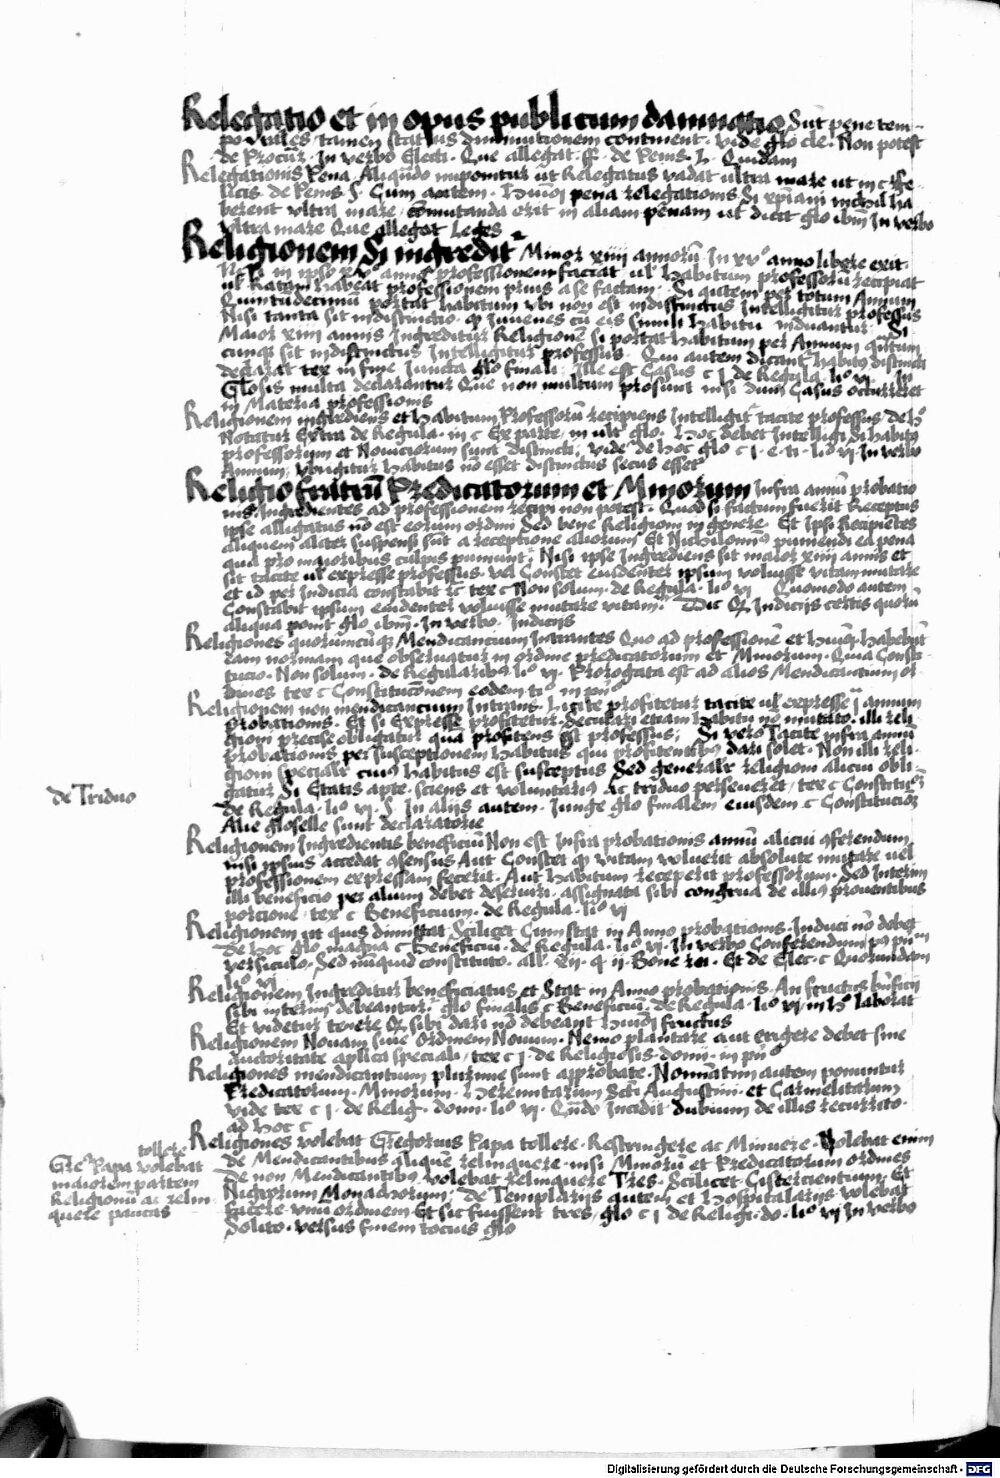 Relegatio et in opus publicum damnatio Sūt pene tem-
porales, tamen status diminutionem continent. vide glo cle. Non potest
de Procur. In verbo Electi. Que allegat ff. de Penis. L. Quidam
Relegationis Pena. Aliqn̄do imponitur ut Relegatus vadat ultra mare ut in c fe-
licis. de Penis. §. Cum autem. Huiōi pena relegationis Si xp̄iani nichil ha
berent vltra mare, cōmutanda erit in aliam penam ut dicit glo ibm̄ In verbo
vltra mare Que allegat Leges
Religionem Si ingredit᷑ Minor xiiii annorū. In xvᵒ anno libere exit.
Nisi in ipso xvᵒ anno professionem faciat ul' habitum professorū recipiat
ul' Ratam habeat professionem prius a se factam. Si autem per totum Annum
Quintudecimū portat habitum vbi non est indistinctus Intelligitur professus
Nisi tanta sit indistinctio. qp Iuuenes cū eis simili habitu induantur. Si
Maior xiiii annis Ingreditur Religionē si portat habitum per Annum qn̄tum
cunqȝ sit indistinctus Intelligitur professus. Qui autem dicant᷑ habitꝰ distincti
declarat tex in fine Iuncta glo finali. Ille est Casus c j de Regula. liᵒ vi. In
Glosis multa declarantur Que non multum prosunt nisi dum Casus occurreret
in Materia professionis
Religionem ingrediens et habitum Professorū recipiens Intelligit᷑ tacite professus de hᵒ
Notatur Extra de Regula. in c Ex parte, in ult glo. Hoc debet Intelligi Si habitꝰ
professorum et Nouiciorum sunt distincti, vide de hoc glo c j. e. ti. liᵒ vj. In verbo
Annum, vbi igitur habitus nō esset distinctus secus esset
Religio fratrū Predicatorum et Minorum Infra annū probatio
nis, Ingredientes ad professionem recipi non potest. Quod si factum fuerit Receptus
ipse alligatus nō est eorum ordini Sed bene Religioni in genere. Et Ipsi Recipiētes
aliquem aliter suspensi sūt a receptione aliorum, Et Nichilominꝰ puniendi ea pena
qua pro maioribus culpis puniunt᷑. Nisi ipse Ingrediens sit maior xiiii annis et
sit tacite ul' expresse professus. vel Constet euidenter ipsum voluisse vitam mutare
et id per Indicia constabit ꝛc tex c Non solum. de Regula. liᵒ vi Quomodo autem
Constabit ipsum euidenter voluisse mutare vitam. Dic qȝ Indicijs certis quorū
aliqua ponit glo ibm̄. In verbo. Indicijs
Religiones quorumcūqȝ Mendicancium Intrantes Quo ad professionē et huiōi. habebūt
eam normam que obseruatur in ordine predicatorum et Minorum. Qua Consti-
tucio. Non solum. de Regularibꝰ liᵒ vj. Prorogata est ad alios Mendicantium or
dines tex c Constitucōnem eodem tiᵒ in prīᵒ
Religionem non mendicancium Intrans. Licite profitetur tacite ul' expresse j̄ annum
probationis. Et si Expresse profitetur. Seculari etiam habitu nō mutato. illi reli
gioni precise obligatur quā profitens est professus; Si vero Tacite infra annū
probationis, per susceptionem habitus qui profitentibꝰ dari solet. Non illi reli-
gioni specialr̄ cuiꝰ habitus est susceptus Sed generalr̄ religioni alicui obli-
gatur Si Etatis apte. sciens et voluntariꝰ Ac triduo perseueret, tex c Constituc̄
de Regula. liᵒ vi. §. In alijs autem. Iunge glo finalem eiusdem c Constitucioȝ
Alie gloselle sunt declaratorie
de Triduo
Religionem Ingredientis beneficiū Non est Infra probationis annū alicui cōferendum
nisi ipsius accedat cōsensus Aut Constet qp vitam voluerit absolute mutare uel
professionem expressam fecerit. Aut habitum receperit professorum. Sed Interim
illi beneficio per alium debet deseruiri. assignata sibi congrua de illiꝰ prouentibus
porcione, tex c Beneficium. de Regula. liᵒ vi
Religionem ut quis dimittat. Scilicet Cum stat in Anno probationis. Induci nō debet
De hoc glo magna c Beneficiū. de Regula. liᵒ vi. In verbo Conferendum
versiculo, Sed nūquid constituto. all. xii. q ij. Bone rei. Et de Elec. c Quorundam
liᵒ vi
Religionem Ingreditur beneficiatus et Stat in Anno probationis. An fructus bn̄ficij
sibi interim debeantur. glo finalis c Beneficiū. de Regula. liᵒ vi in hᵒ laborat
Et videtur tenere qȝ sibi dari nō debeant huiōi fructus
Religionem Nouam siue Ordinem Nouum. Nemo plantare aut erigere debet sine
auctoritate aplica speciali, tex c j. de Religiosis. domi. in prīᵒ
Religiones mendicantium plurime sunt approbate. Nominatim autem ponuntur
Predicatorum. Minorum. Heremitarum Sctī Augustini. et Carmelitarum
vide tex c j. de Relig. dom. liᵒ vi. Qn̄do Incidit dubium de illis recurrito.
ad hoc c
Religiones volebat Gregorius Papa tollere. Restringere ac Minuere. Volebat enim
de Mendicantibus aliquē relinquere. nisi Minorū et Predicatorum ordines
de non Mendicantibꝰ volebat relinquere Tres. Scilicet Cistercientium. Et
Nigrorum Monachorum. de Templarijs autem et Hospitalarijs volebat
facere. vnū ordinem. Et sic fuissent tres, glo c j de Religi. do. liᵒ vj In verbo
Solito. versus finem tocius glo
tollere
Greᵒ Papa volebat
maiorem partem
Religionū ac relin-
quere paucas
Digitalisierung gefördert durch die Deutsche Forschungsgemeinschaft - DFG